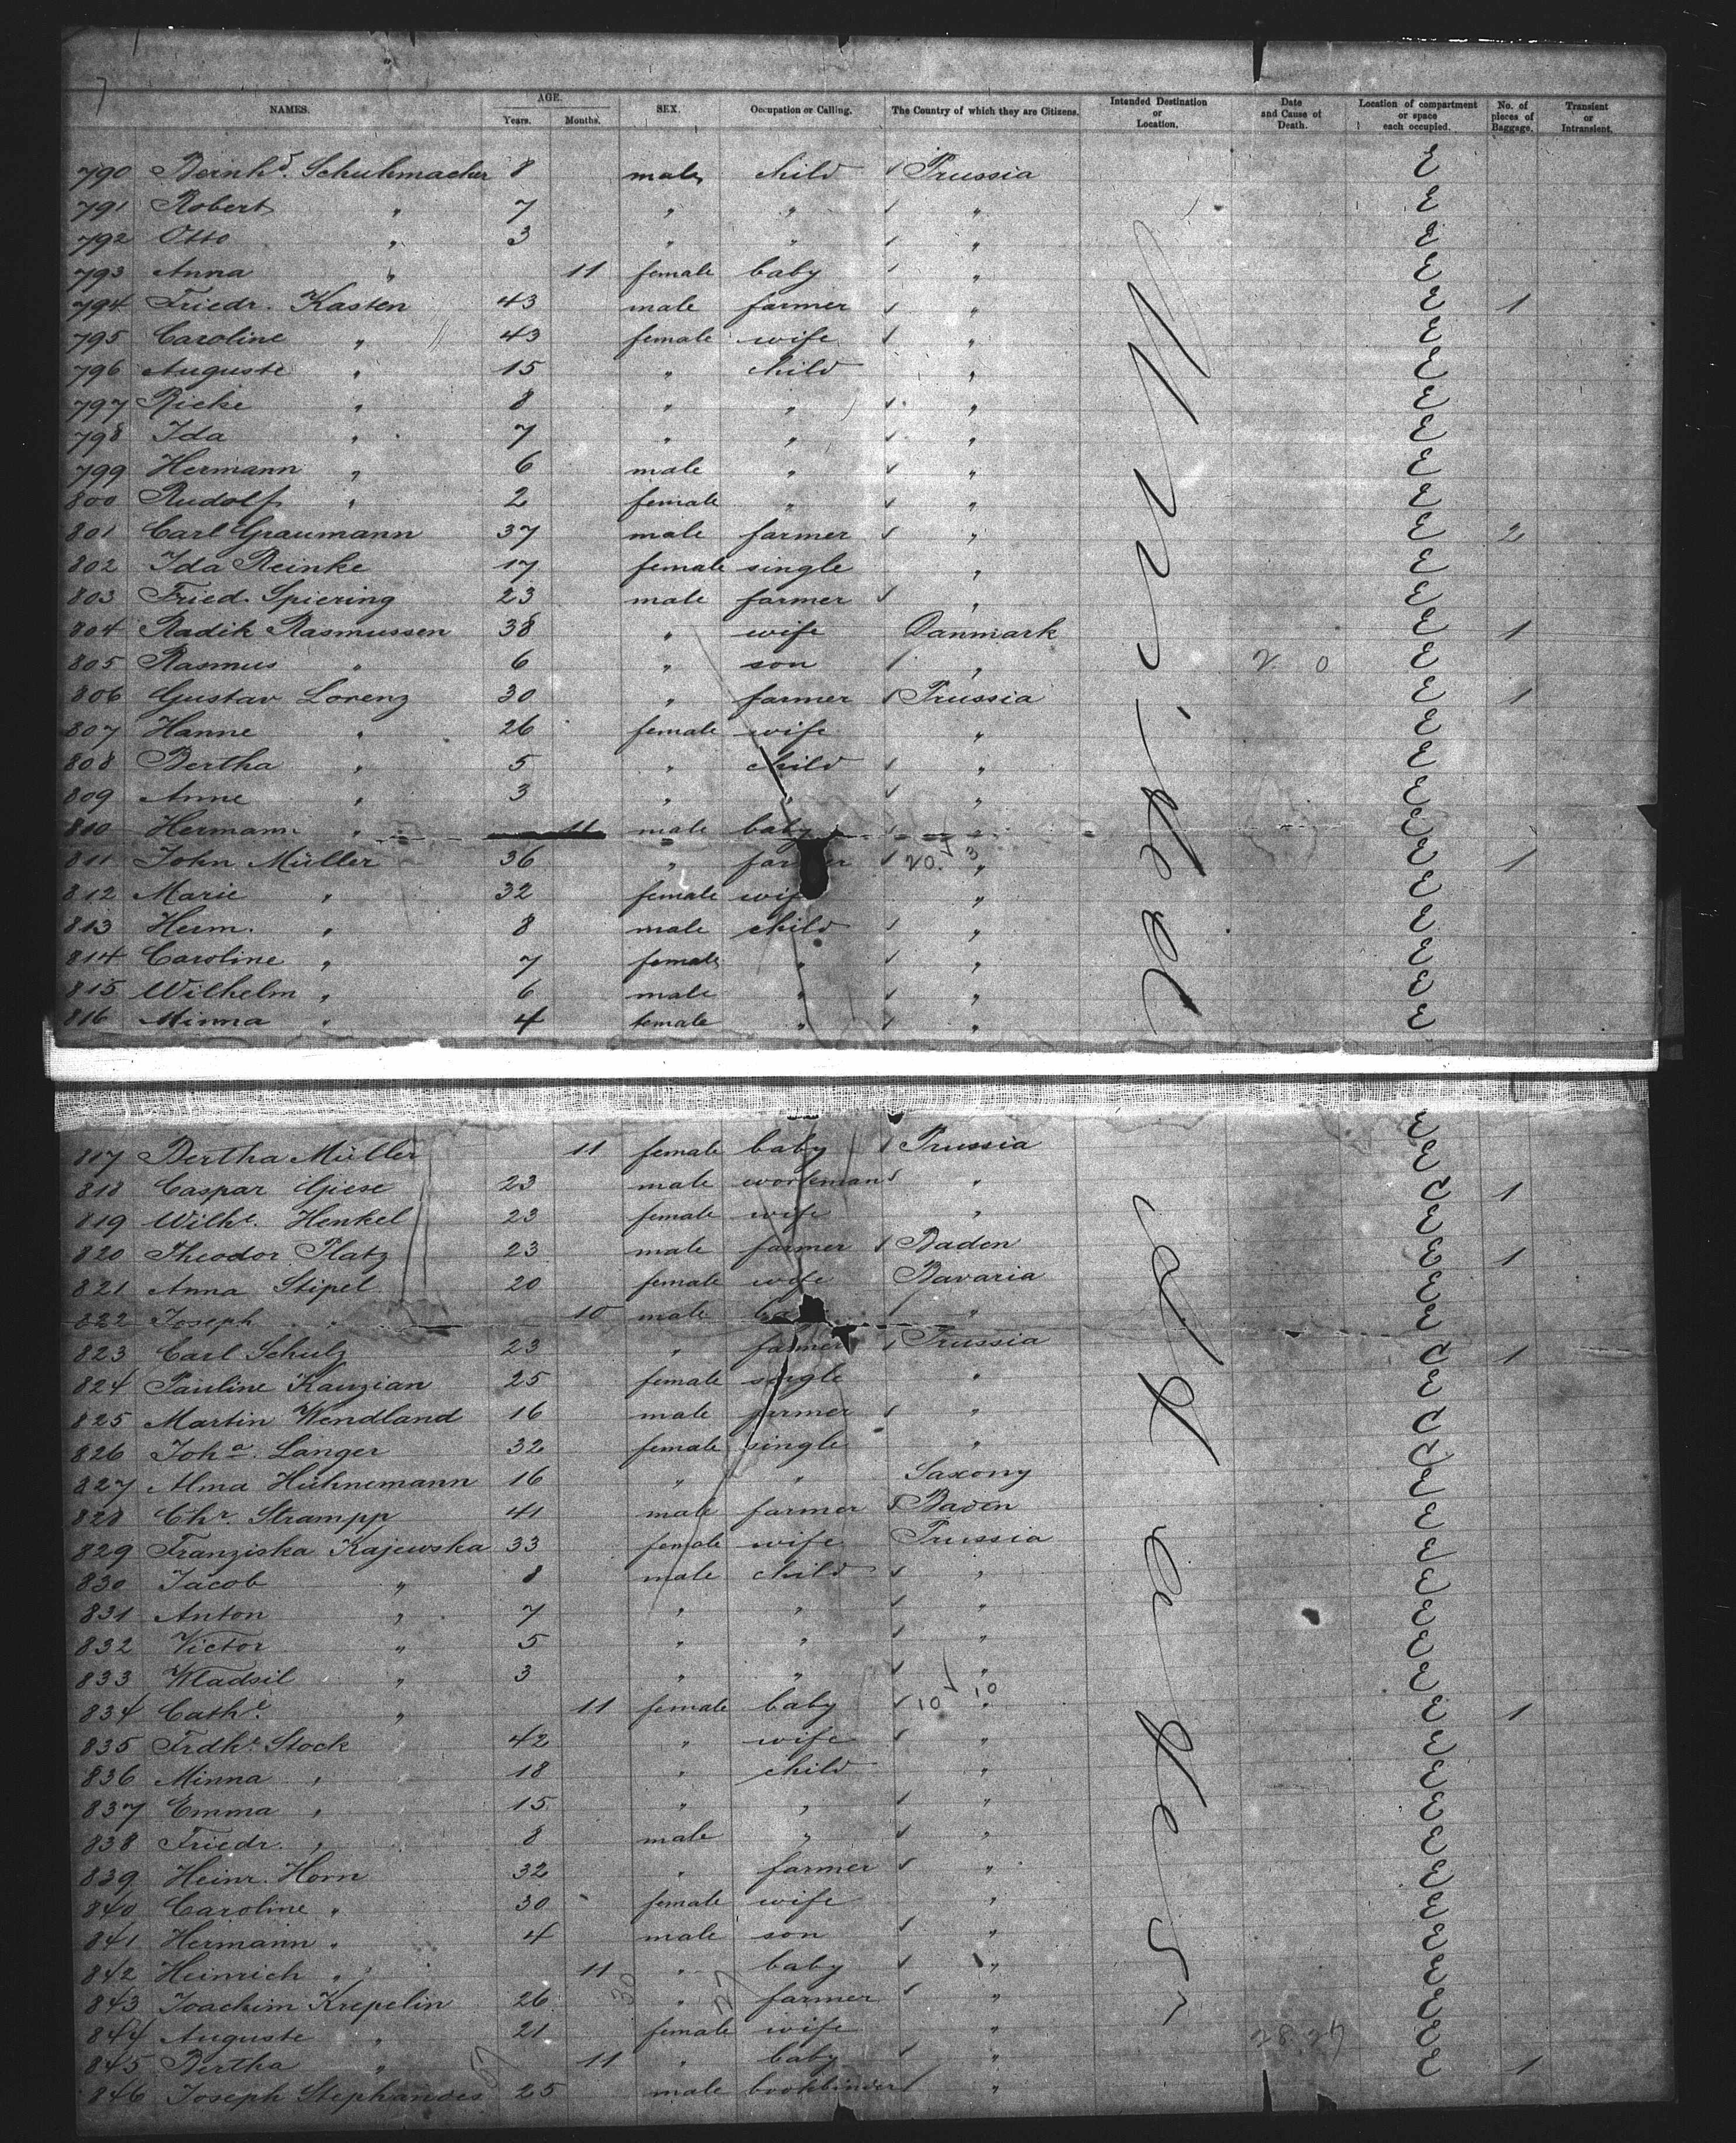 7
NAMES. AGE. Years. Months. SEX. Occupation or Calling. The Country of which they are Citizens. Intended Destination or Location. Date and Cause of Death. Location of compartment or space each occupied. No. of pieces of Baggage. Transient or Intransient.
790 Bernhd. Schuhmacher 8 male child Prussia E
791 Robert " 7 " " " E
792 Otto " 3 " " " E
793 Anna " 11 female baby " E
794 Friedr. Kasten 43 male farmer " E 1
795 Caroline " 43 female wife " E
796 Auguste " 15 " child " E
797 Ricke " 8 " " " E
798 Ida " 7 " " " E
799 Hermann " 6 male " " E
800 Rudolf " 2 female " " E
801 Carl Graumann 37 male farmer " E 2
802 Ida Reinke 17 female single " E
803 Fried. Spiering 23 male farmer " E
804 Radik Rasmussen 38 " wife Danmark E 1
805 Rasmus " 6 " son " 2 0 E
806 Gustav Lorenz 30 " farmer Prussia E 1
807 Hanne " 26 female wife " E
808 Bertha " 5 " child " E
809 Anne " 3 " " " E
810 Hermann " 11 male baby " E
811 John Müller 36 " farmer 20. 3 " E 1
812 Marie " 32 female wife " E
813 Herm. " 8 male child " E
814 Caroline " 7 female " " E
815 Wilhelm " 6 male " " E
816 Minna " 4 female " " E
817 Bertha Müller 11 female baby Prussia E
818 Caspar Giese 23 male workman " E 1
819 Wilhe. Henkel 23 female wife " E
820 Theodor Platz 23 male farmer Baden E 1
821 Anna Stipel 20 female wife Bavaria E
822 Joseph " 10 male " E
823 Carl Schulz 23 " farmer Prussia E 1
824 Pauline Kauzian 25 female single " E
825 Martin Wendland 16 male farmer " E
826 Joha. Langer 32 female single " E
827 Alma Hühnemann 16 " " Saxony E
828 Chr. Strampp 41 male farmer Baden E
829 Franziska Kajewska 33 female wife Prussia E
830 Jacob " 8 male child " E
831 Anton " 7 " " " E
832 Victor " 5 " " " E
833 Wladsil " 3 " " " E
834 Cathe. " 11 female baby 10 10 " E 1
835 Frdke. Stock 42 " wife " E
836 Minna " 18 " child " E
837 Emma " 15 " " " E
838 Friedr. " 8 male " " E
839 Heinr. Horn 32 " farmer " E
840 Caroline " 30 female wife " E
841 Hermann " 4 male son " E
842 Heinrich " 11 " baby " E
843 Joachim Krepelin 26 " farmer " E
844 Auguste " 21 female wife " 28.27 E
845 Bertha " 11 " baby " E 1
846 Joseph Stephandes 25 male bookbinder "